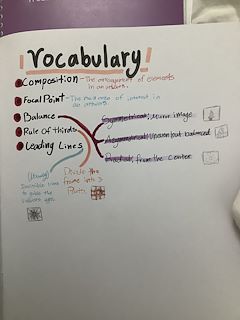 Vocabulary
Composition - The arrangement of elements
in an artwork.
Focal Point - The main area of interest in
an artwork.
Balance
Symmetrical: Mirror image
Rule of thirds
Asymmetrical: Uneven but balanced
Leading Lines
Radial: from the center
(Usually)
Invisible lines
to guide the
viewers eye.
Divide the
frame into 3
Parts.